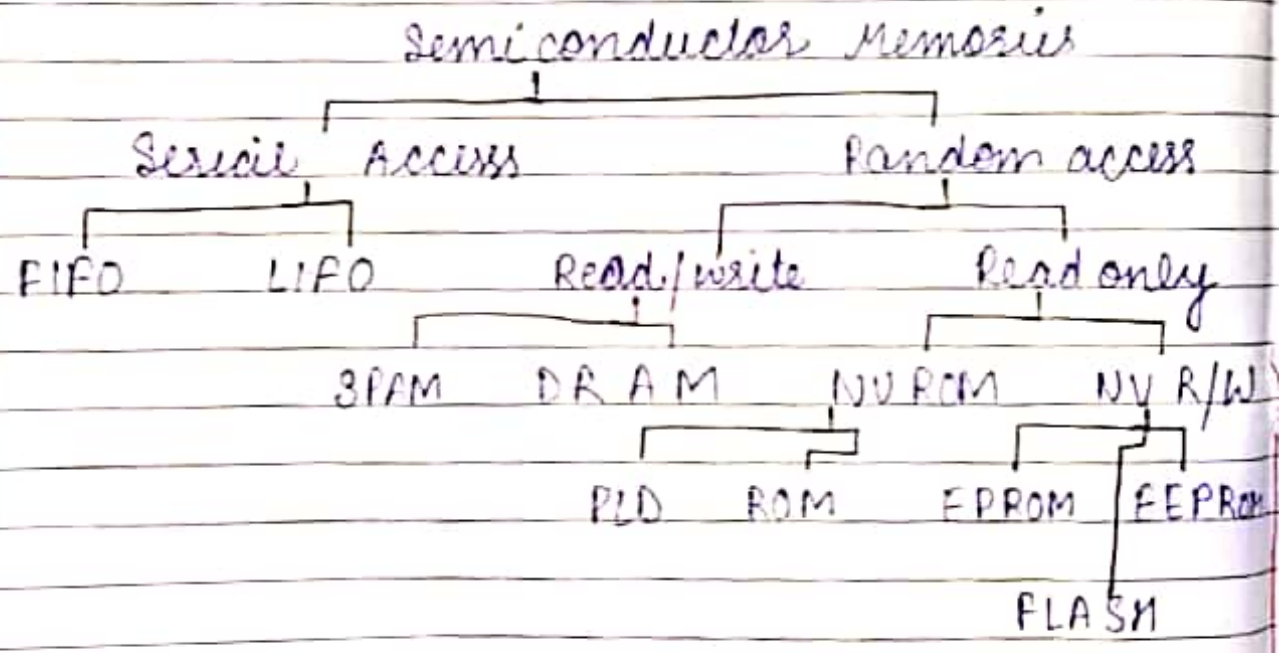 Semiconductor Memories
Serial Access Random access
FIFO LIFO Read/write Read only
SRAM DRAM NV ROM NV R/W
PLD ROM EPROM EEPROM
FLASH